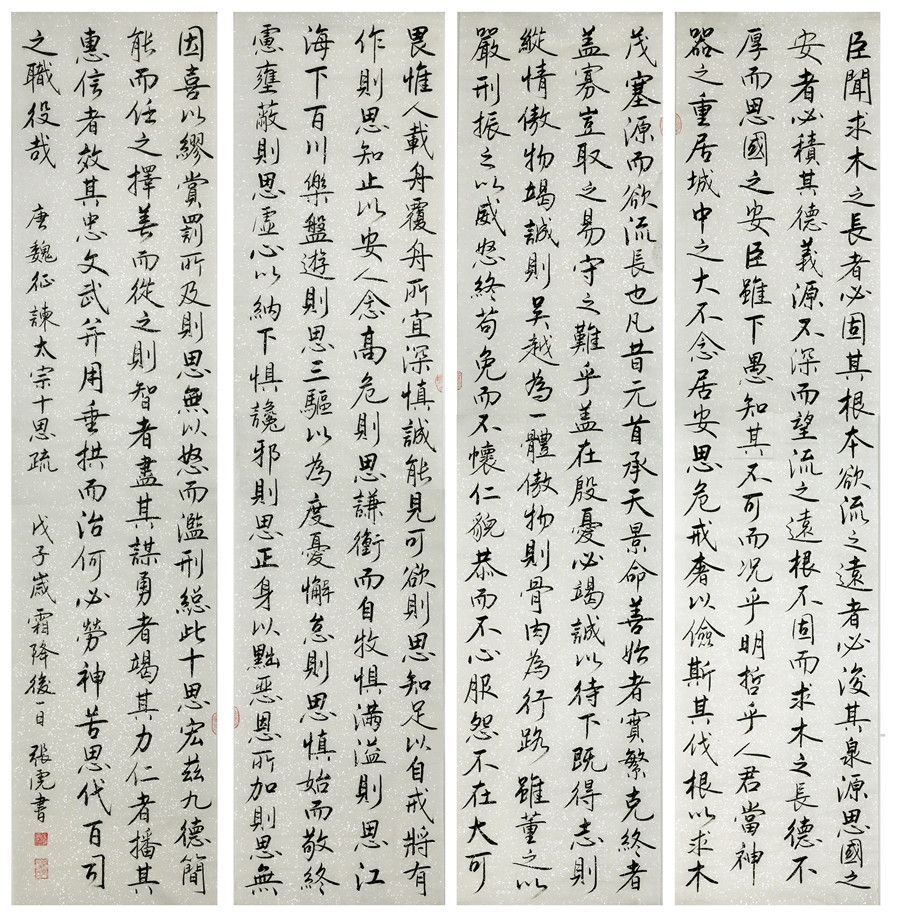 臣聞求木之長者必固其根本欲流之遠者必浚其泉源思國之
安者必積其德義源不深而望流之遠根不固而求木之長德不
厚而思國之安臣雖下愚知其不可而况乎明哲乎人君當神
器之重居城中之大不念居安思危戒奢以儉斯其伐根以求木
茂塞源而欲流長也凡昔元首承天景命善始者實繁克終者
盖寡豈取之易守之難乎盖在殷憂必竭誠以待下既得志則
縱情傲物竭誠則吴越為一體傲物則骨肉為行路雖董之以
嚴刑振之以威怒終苟免而不懷仁貌恭而不心服怨不在大可
畏惟人載舟覆舟所宜深慎誠能見可欲則思知足以自戒將有
作則思知止以安人念高危則思謙衝而自牧惧满溢則思江
海下百川樂盤遊則思三驅以為度憂懈怠則思慎始而敬終
慮壅蔽則思虚心以納下惧讒邪則思正身以黜惡恩所加則思無
因喜以繆賞罰所及則思無以怒而濫刑總此十思宏兹九德簡
能而任之擇善而從之則智者盡其謀勇者竭其力仁者播其
惠信者效其忠文武并用垂拱而治何必勞神苦思代百司
之職役哉 唐魏征諫太宗十思疏 戊子歲霜降後一日 張虎書